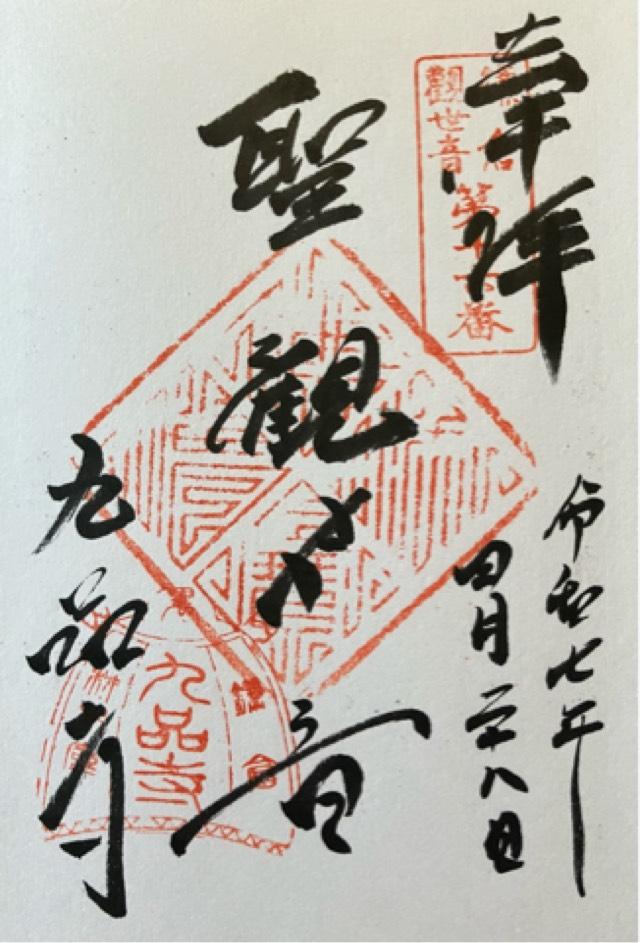 奉拝
鎌倉
觀世音
第十六番
令和七年
四月二十八日
聖觀世音
九品寺
九品寺